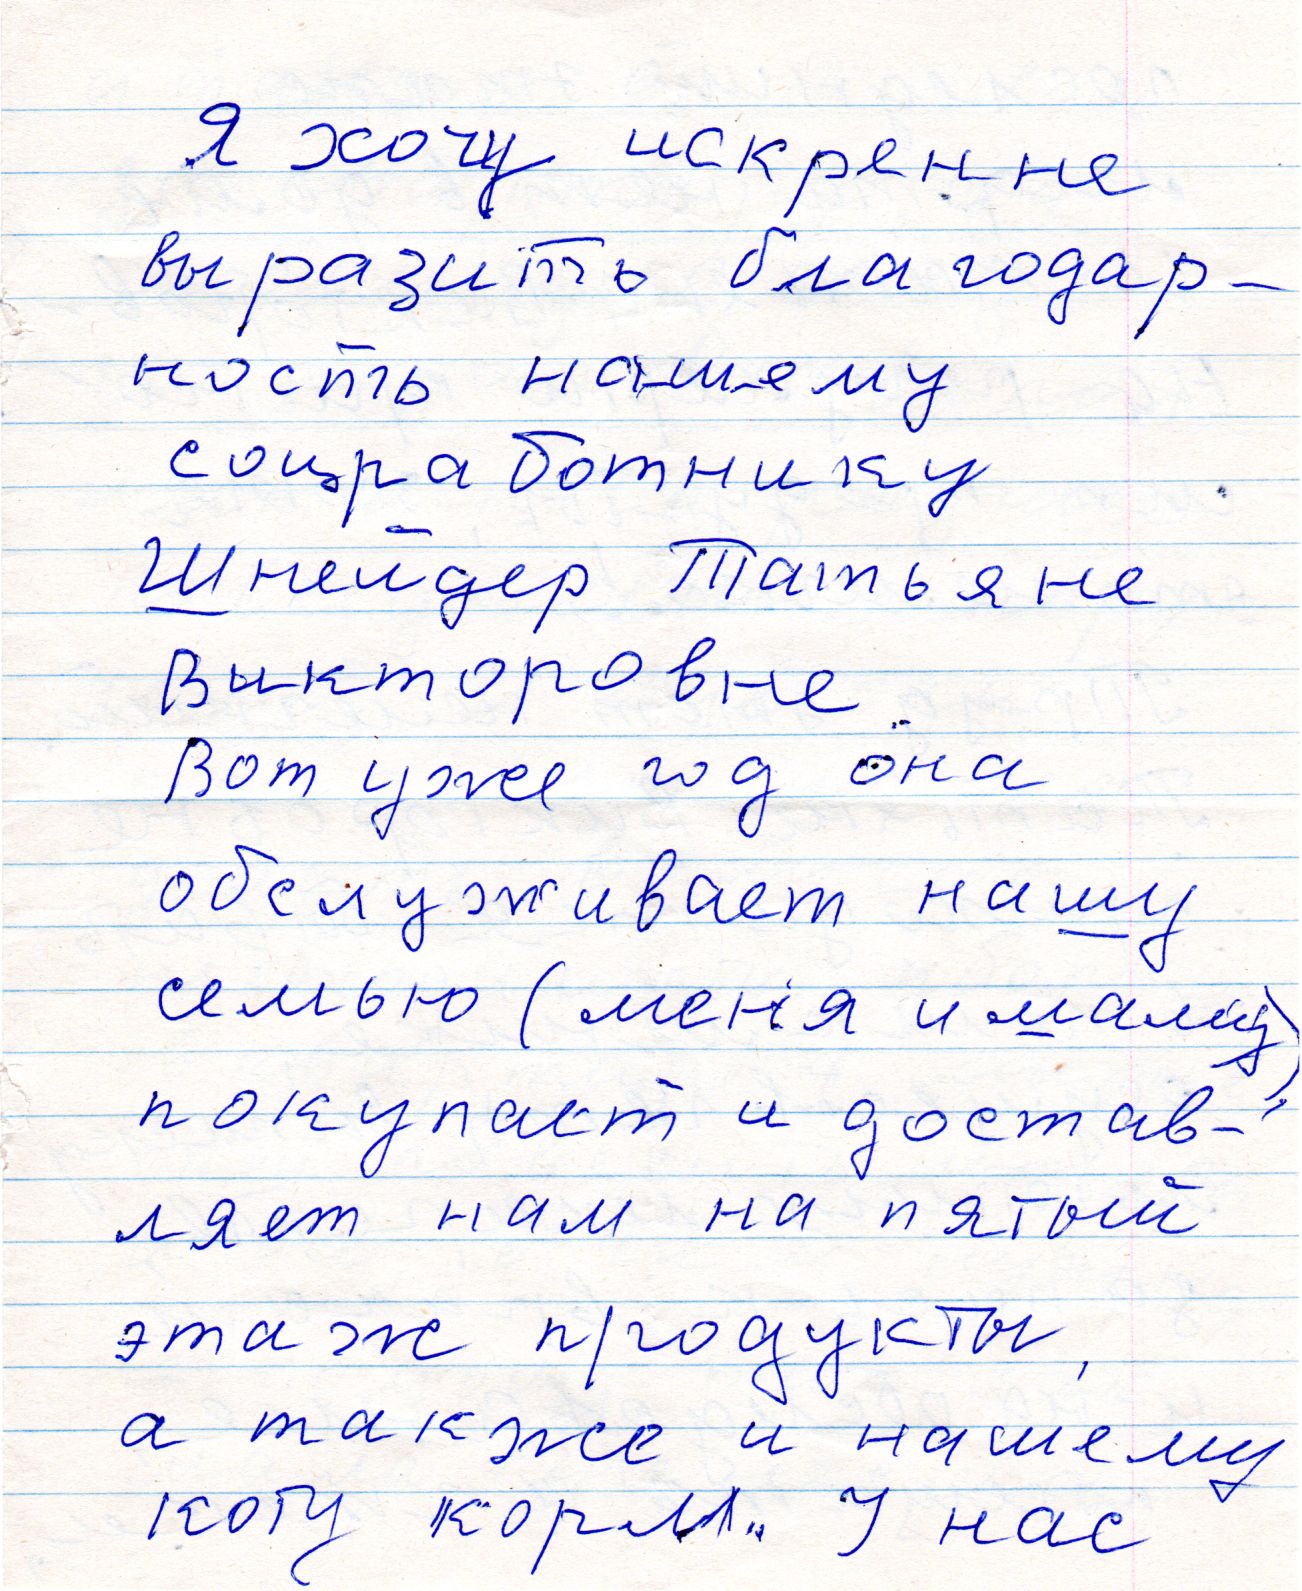 Я хочу искренне
выразить благодар-
ность нашему
соцработнику
Шнейдер Татьяне
Викторовне
Вот уже год она
обслуживает нашу
семью (меня и маму),
покупает и достав-
ляет нам на пятый
этаж продукты,
а также и нашему
коту корм. У нас